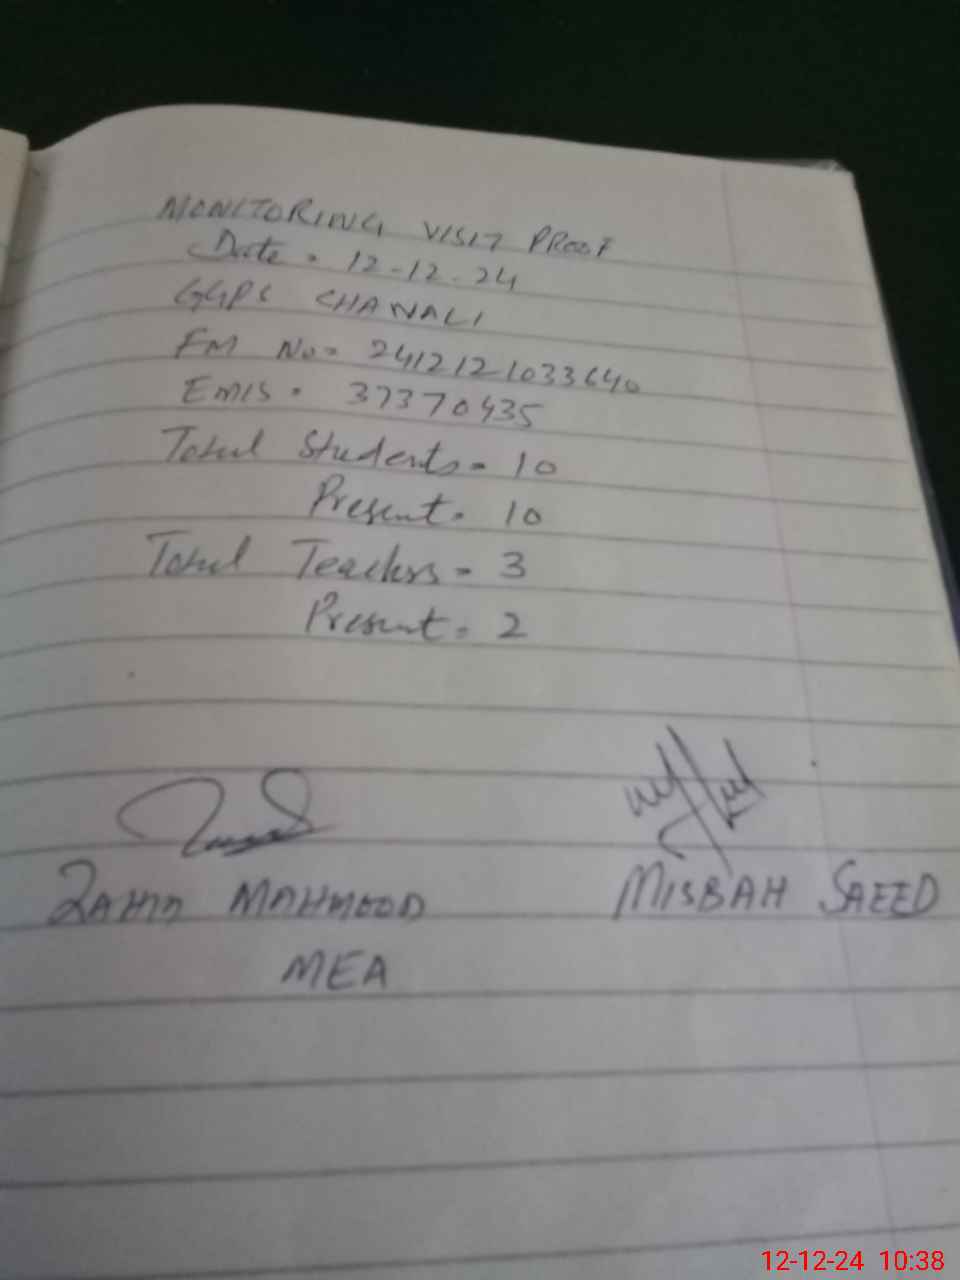 MONITORING VISIT PROOF
Date = 12-12-24
GGPS CHAWALI
FM No = 2412121033640
EMIS = 37370435
Total Students = 10
Present = 10
Total Teachers = 3
Present = 2
ZAHID MAHMOOD
MISBAH SAEED
MEA
12-12-24 10:38